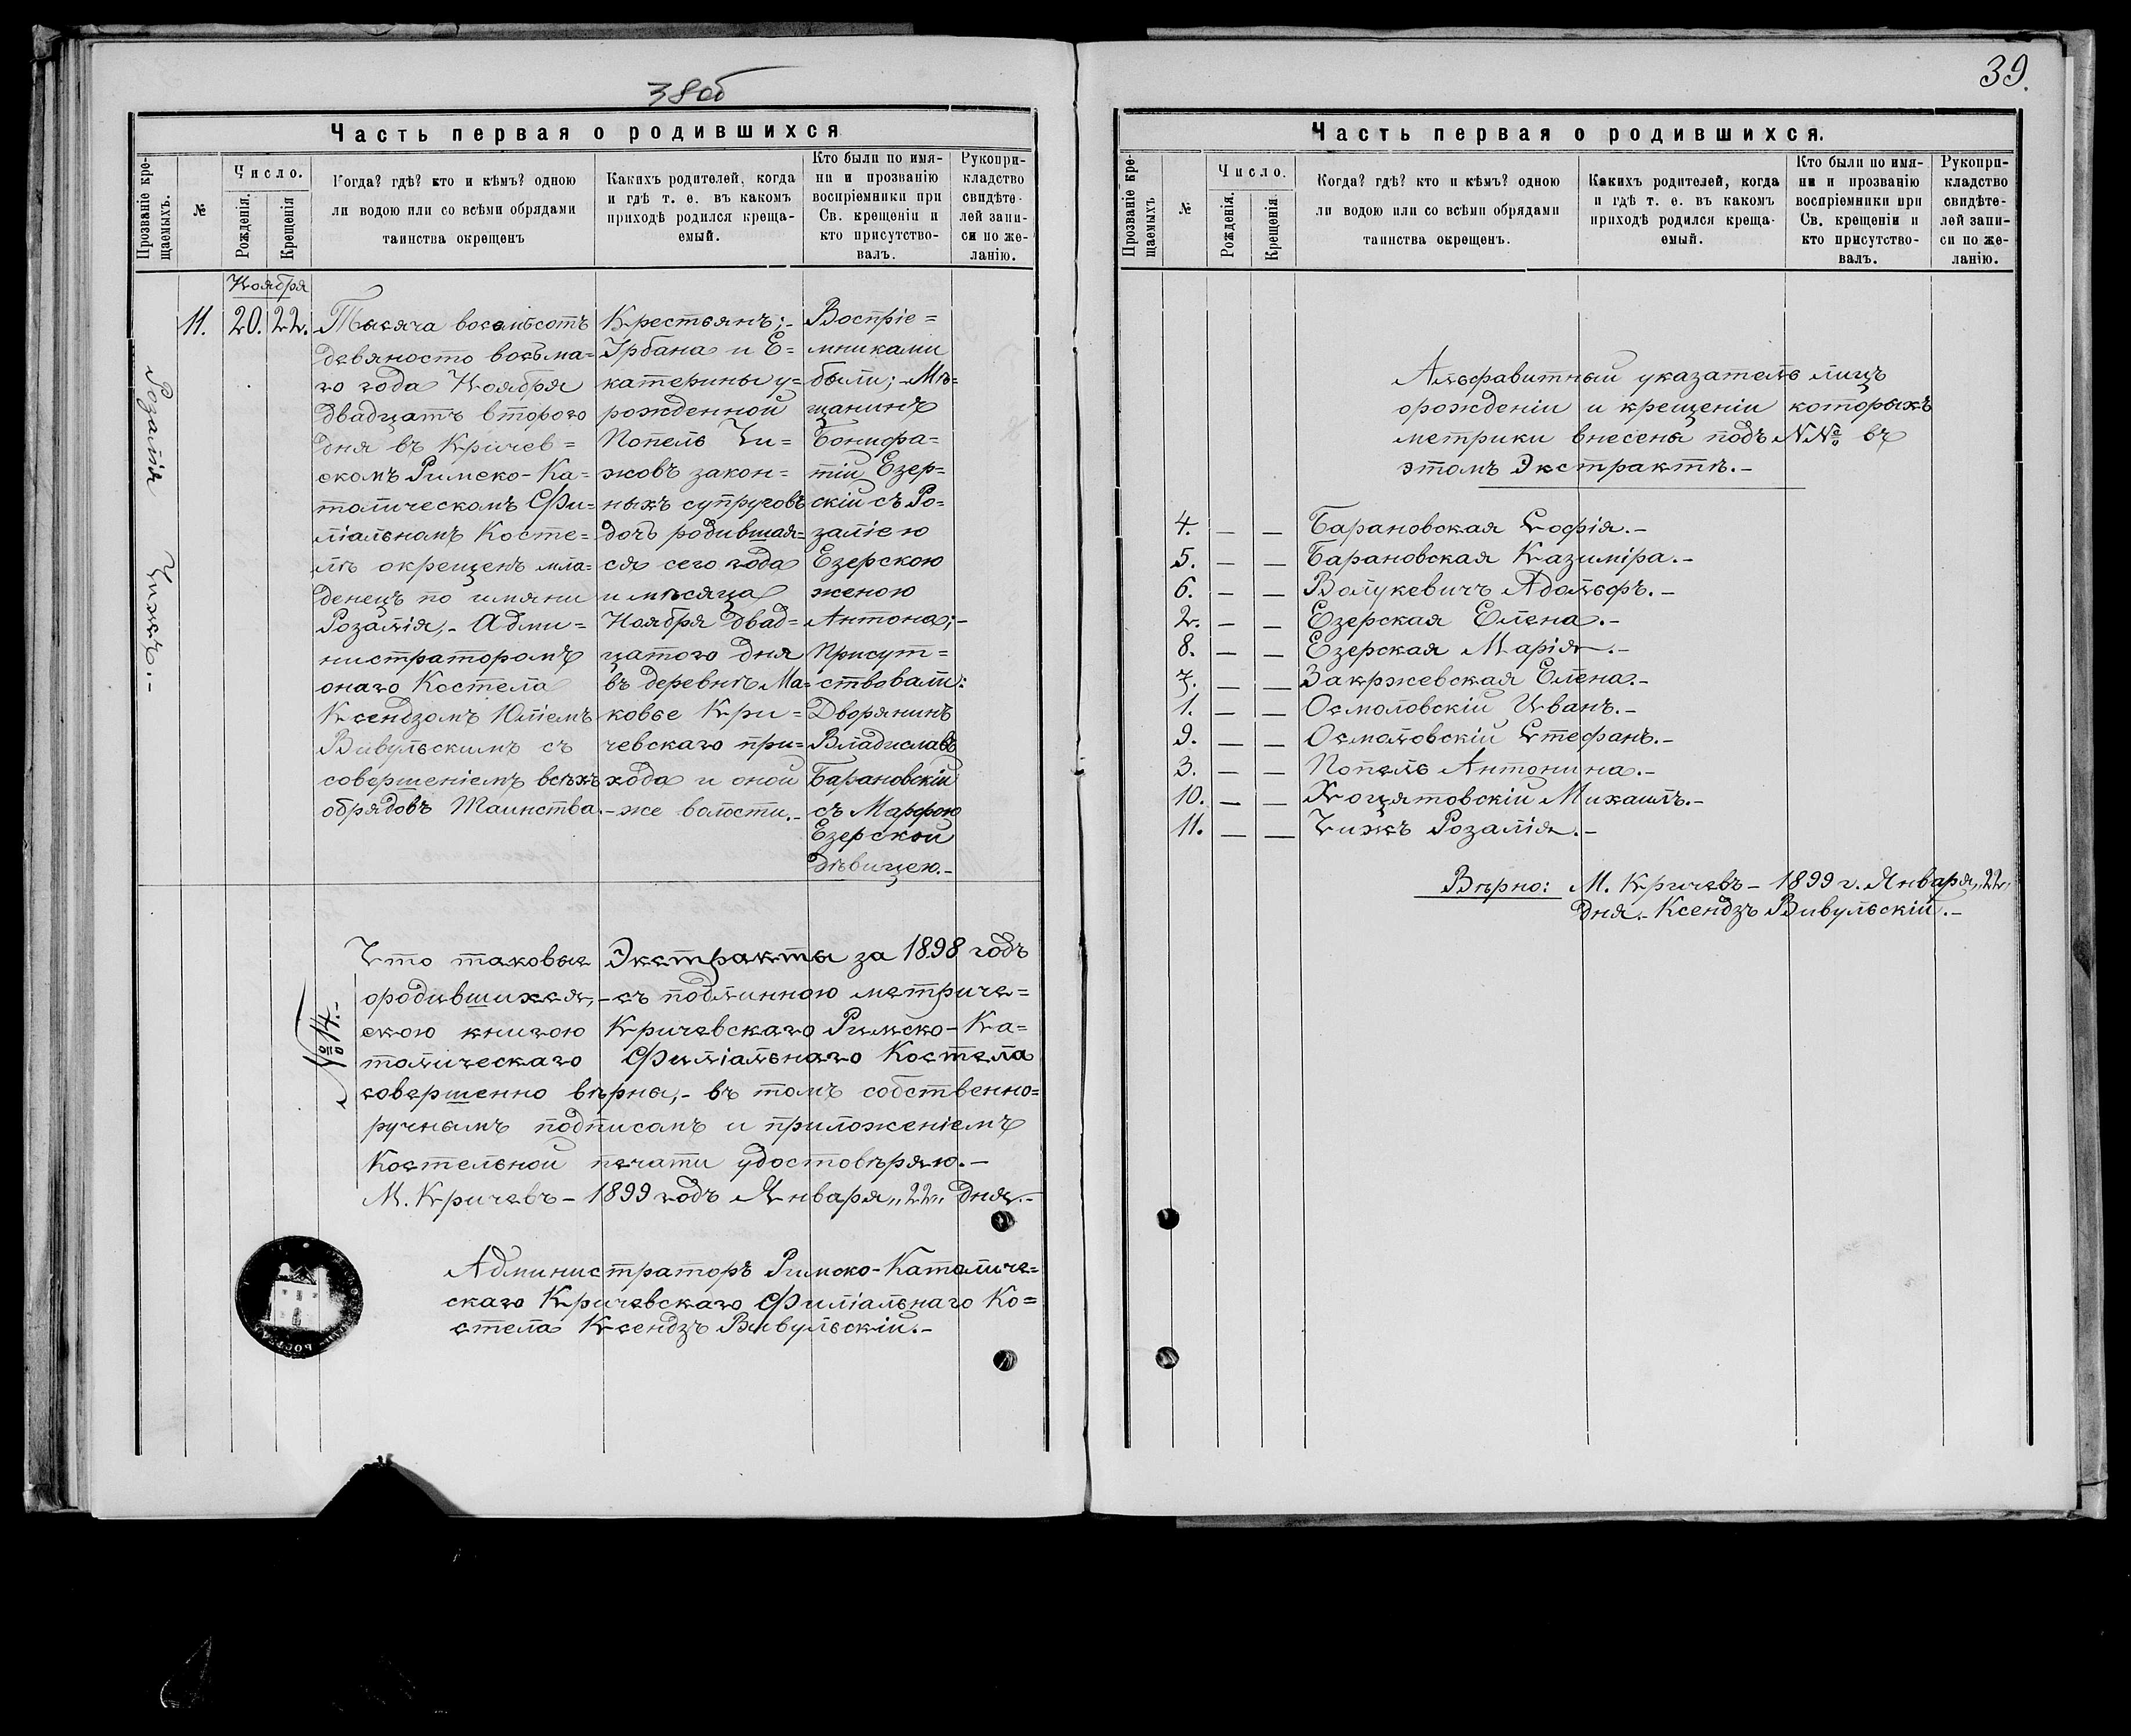 38об
Часть первая о родившихся
Прозваніе кре-
щаемыхъ.
№
Число.
Рожденія.
Крещенія
Когда? гдѣ? кто и кѣмъ? одною
ли водою или со всѣми обрядами
таинства окрещенъ
Какихъ родителей, когда
и гдѣ т. е. въ какомъ
приходѣ родился креща-
емый.
Кто были по имя-
ни и прозванію
воспріемники при
Св. крещеніи и
кто присутство-
валъ.
Рукопри-
кладство
свидѣте-
лей запи-
си по же-
ланію.
Розалія Чижъ.-
Ноября
11. 20. 22.
Тысяча восемьсотъ
девяносто восьма=
го года Ноября
двадцать второго
дня въ Кричев=
скомъ Римско-Ка=
толическомъ Фи=
ліальномъ Косте=
лѣ окрещенъ мла=
денецъ по имяни
Розалія,- Адми=
нистраторомъ
онаго Костела
Ксендзомъ Юліемъ
Вивульскимъ съ
совершеніемъ всѣхъ
обрядовъ Таинства.-
Крестьянъ;-
Урбана и Е=
катерины у=
рожденной
Попель Чи=
жовъ закон=
ныхъ супруговъ
дочь родившая=
ся сего года
и мѣсяца
Ноября двад=
цатого дня
въ деревнѣ Ма=
ковье Кри=
чевскаго при=
хода и оной
же волости.-
Воспріе=
мниками
были;- Мѣ=
щанинъ
Бонифа=
тій Езер=
скій съ Ро=
заліею
Езерскою
женою
Антона;-
Присут=
ствовали:
Дворянинъ
Владиславъ
Барановскій
съ Марфою
Езерской
дѣвицею.-
Что таковые Экстракты за 1898 годъ
ородившихся,- съ подлинною метриче=
скою книгою Кричевскаго Римско-Ка=
толическаго Филіальнаго Костела
совершенно вѣрны,- въ томъ собственно=
ручнымъ подписомъ и приложеніемъ
Костельной печати удостовѣряю.-
М. Кричевъ - 1899 годъ Января „22„ дня.-
№ 14.-
Администраторъ Римско-Католиче=
скаго Кричевскаго Филіальнаго Ко=
стела Ксендзъ Вивульскій.-
39.
Часть первая о родившихся.
Прозваніе кре-
щаемыхъ
№
Число.
Рожденія.
Крещенія.
Когда? гдѣ? кто и кѣмъ? одною
ли водою или со всѣми обрядами
таинства окрещенъ.
Какихъ родителей, когда
и гдѣ т. е. въ какомъ
приходѣ родился креща-
емый.
Кто были по имя-
ни и прозванію
воспріемники при
Св. крещеніи и
кто присутство-
валъ.
Рукопри-
кладство
свидѣте-
лей запи-
си по же-
ланію.
Альфавитный указатель лицъ
орожденіи и крещеніи которыхъ
метрики внесены подъ N№ въ
этомъ Экстрактѣ.-
4. — — Барановская Софія.-
5. — — Барановская Казиміра.-
6. — — Волукевичъ Адольфъ.-
2. — — Езерская Елена.-
8. — — Езерская Марія.-
7. — — Закржевская Елена.-
1. — — Осмоловскій Иванъ.-
9. — — Осмоловскій Стефанъ.-
3. — — Попель Антонина.-
10. — — Хоцятовскій Михаилъ.-
11. — — Чижъ Розалія.-
Вѣрно: М. Кричевъ - 1899 г. Января „22„
дня.- Ксендзъ Вивульскій.-